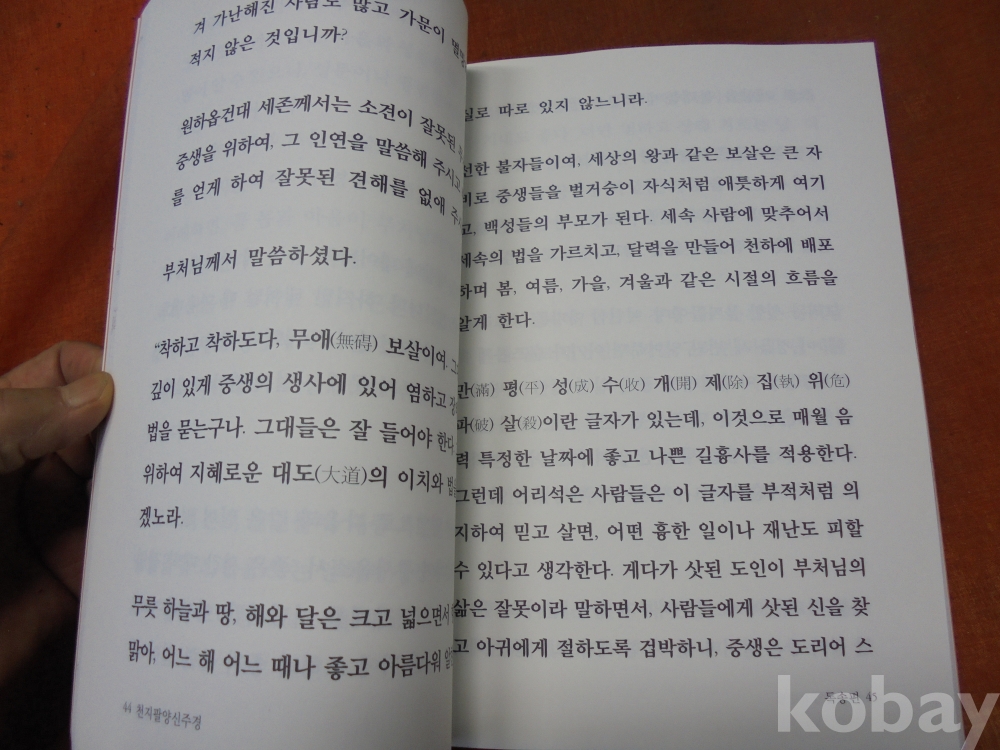 겨 가난해진 사람도 많고 가문이
적지 않은 것입니까?
원하옵건대 세존께서는 소견이 잘못된
중생을 위하여, 그 인연을 말씀해 주시고
를 얻게 하여 잘못된 견해를 없애
부처님께서 말씀하셨다.
“착하고 착하도다, 무애(無碍) 보살이여.
깊이 있게 중생의 생사에 있어 염하고
법을 묻는구나. 그대들은 잘 들어야 한다
위하여 지혜로운 대도(大道)의 이치와
겠노라.
무릇 하늘과 땅, 해와 달은 크고 넓으면서
맑아, 어느 해 어느 때나 좋고 아름다워
44 천지팔양신주경
실로 따로 있지 않느니라.
선한 불자들이여, 세상의 왕과 같은 보살은 큰 자
비로 중생들을 벌거숭이 자식처럼 애틋하게 여기
고, 백성들의 부모가 된다. 세속 사람에 맞추어서
세속의 법을 가르치고, 달력을 만들어 천하에 배포
하며 봄, 여름, 가을, 겨울과 같은 시절의 흐름을
알게 한다.
만(滿) 평(平) 성(成) 수(收) 개(開) 제(除) 집(執) 위(危)
파(破) 살(殺)이란 글자가 있는데, 이것으로 매월 음
력 특정한 날짜에 좋고 나쁜 길흉사를 적용한다.
그런데 어리석은 사람들은 이 글자를 부적처럼 의
지하여 믿고 살면, 어떤 흉한 일이나 재난도 피할
수 있다고 생각한다. 게다가 삿된 도인이 부처님의
삶은 잘못이라 말하면서, 사람들에게 삿된 신을 찾
고 아귀에게 절하도록 겁박하니, 중생은 도리어 스
독송편 45
kobay